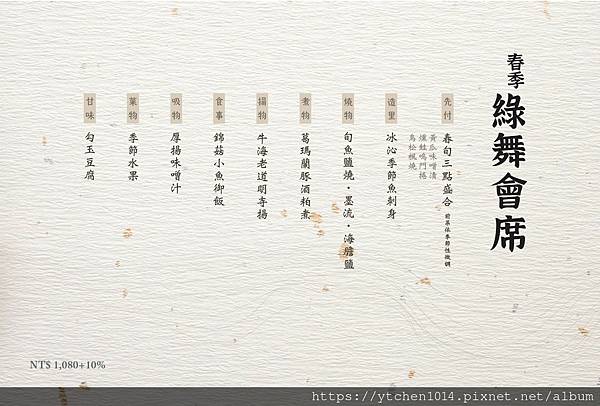 春季
綠舞會席
先付
春旬三點盛合 前菜依季節性微調
黃瓜味噌漬
燻鮭鳴門捲
烏松楓燒
造里
冰沁季節魚刺身
燒物
旬魚鹽燒・墨流・海膽鹽
煮物
葛瑪蘭豚酒粕煮
揚物
牛海老道明寺揚
食事
錦菇小魚御飯
吸物
厚揚味噌汁
菓物
季節水果
甘味
勾玉豆腐
NT$ 1,080+10%
https://ytchen1014.pixnet.net/album